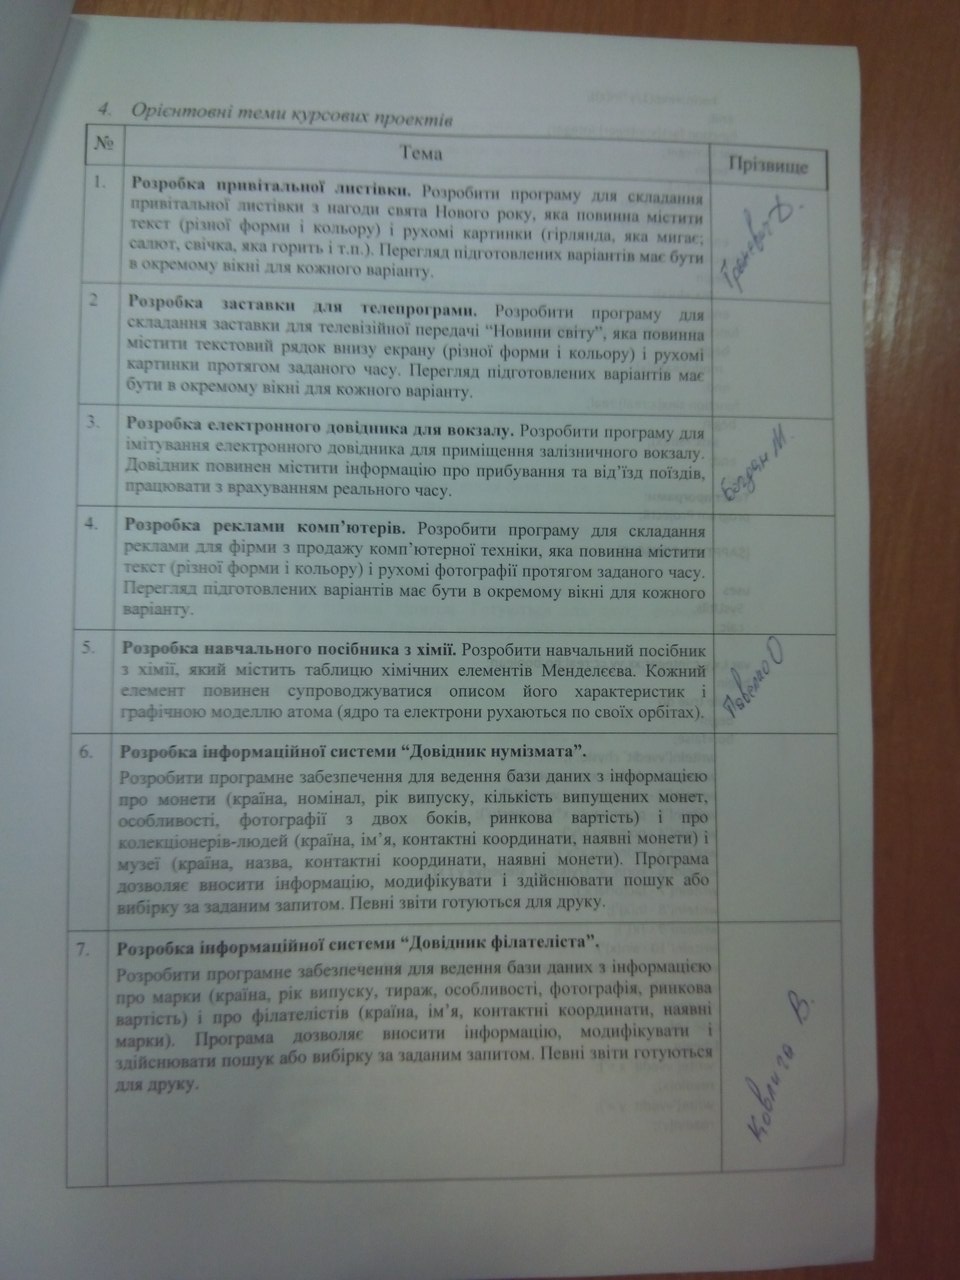 4. Орієнтовні теми курсових проектів
№ Тема Прізвище
1. Розробка привітальної листівки. Розробити програму для складання
привітальної листівки з нагоди свята Нового року, яка повинна містити
текст (різної форми і кольору) і рухомі картинки (гірлянда, яка мигає;
салют, свічка, яка горить і т.п.). Перегляд підготовлених варіантів має бути
в окремому вікні для кожного варіанту.
2 Розробка заставки для телепрограми. Розробити програму для
складання заставки для телевізійної передачі “Новини світу”, яка повинна
містити текстовий рядок внизу екрану (різної форми і кольору) і рухомі
картинки протягом заданого часу. Перегляд підготовлених варіантів має
бути в окремому вікні для кожного варіанту.
3. Розробка електронного довідника для вокзалу. Розробити програму для
імітування електронного довідника для приміщення залізничного вокзалу.
Довідник повинен містити інформацію про прибування та від’їзд поїздів,
працювати з врахуванням реального часу.
Богдан М.
4. Розробка реклами комп’ютерів. Розробити програму для складання
реклами для фірми з продажу комп’ютерної техніки, яка повинна містити
текст (різної форми і кольору) і рухомі фотографії протягом заданого часу.
Перегляд підготовлених варіантів має бути в окремому вікні для кожного
варіанту.
5. Розробка навчального посібника з хімії. Розробити навчальний посібник
з хімії, який містить таблицю хімічних елементів Менделєєва. Кожний
елемент повинен супроводжуватися описом його характеристик і
графічною моделлю атома (ядро та електрони рухаються по своїх орбітах).
Павелко О
6. Розробка інформаційної системи “Довідник нумізмата”.
Розробити програмне забезпечення для ведення бази даних з інформацією
про монети (країна, номінал, рік випуску, кількість випущених монет,
особливості, фотографії з двох боків, ринкова вартість) і про
колекціонерів-людей (країна, ім’я, контактні координати, наявні монети) і
музеї (країна, назва, контактні координати, наявні монети). Програма
дозволяє вносити інформацію, модифікувати і здійснювати пошук або
вибірку за заданим запитом. Певні звіти готуються для друку.
7. Розробка інформаційної системи “Довідник філателіста”.
Розробити програмне забезпечення для ведення бази даних з інформацією
про марки (країна, рік випуску, тираж, особливості, фотографія, ринкова
вартість) і про філателістів (країна, ім’я, контактні координати, наявні
марки). Програма дозволяє вносити інформацію, модифікувати і
здійснювати пошук або вибірку за заданим запитом. Певні звіти готуються
для друку.
Ковлига В.